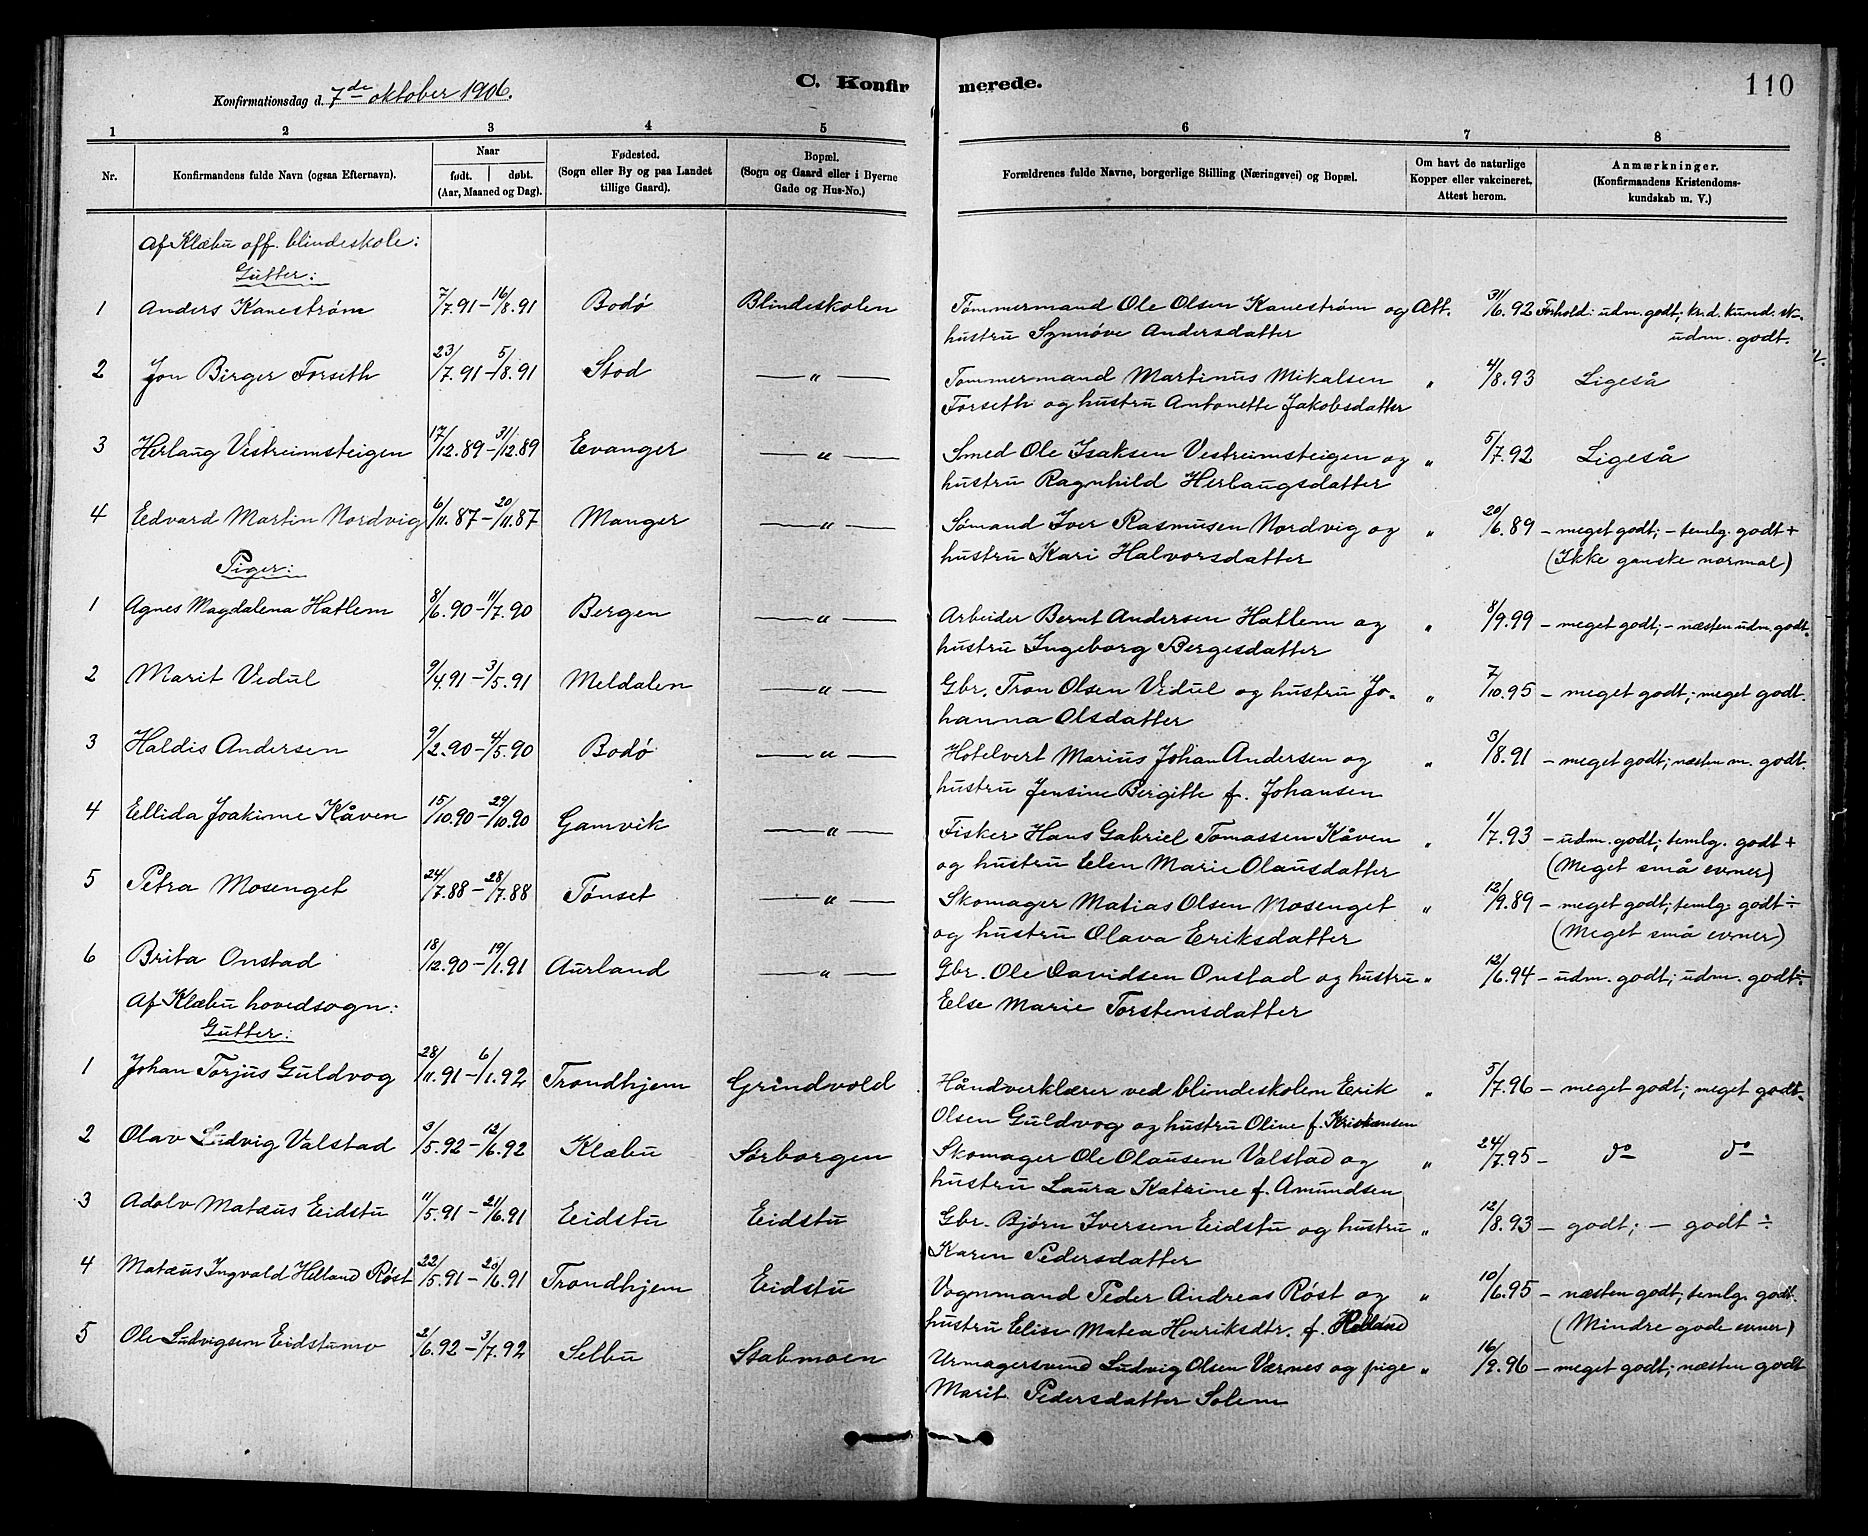 Konfirmationsdag d. 7de oktober 1906.
C. Konfirmerede.
110
1 2 3 4 5 6 7 8
Nr.
Konfirmandens fulde Navn (ogsaa Efternavn).
Naar
født. døbt.
(Aar, Maaned og Dag).
Fødested.
(Sogn eller By og paa Landet
tillige Gaard).
Bopæl.
(Sogn og Gaard eller i Byerne
Gade og Hus-No.)
Forældrenes fulde Navne, borgerlige Stilling (Næringsvei) og Bopæl.
Om havt de naturlige
Kopper eller vakcineret.
Attest herom.
Anmærkninger.
(Konfirmandens Kristendoms-
kundskab m. V.)
Af Klæbu off. blindeskole:
Gutter:
1 Anders Kanestrøm 7/7.91 – 16/8.91 Bodø Blindeskolen Tømmermand Ole Olsen Kanestrøm og Att. 31/6.92 Forhold: udm. godt; kr.d. kund.sk.
hustru Synnøve Andersdatter udm. godt.
2 Jon Birger Forseth 23/7.91 – 5/8.91 Stod — " — Tømmermand Martinus Mikalsen " 4/8.93 Ligeså
Forseth og hustru Antonette Jakobsdatter
3 Herlaug Vestreimsteigen 17/12.89 – 31/12.89 Evanger — " — Smed Ole Isaksen Vestreimsteigen og " 5/7.92 Ligeså
hustru Ragnhild Herlaugsdatter
4 Edvard Martin Nordvig 6/11.87 – 20/11.87 Manger — " — Sømand Iver Rasmusen Nordvig og " 20/6.89 – meget godt; – temlg. godt +
hustru Kari Halvorsdatter (Ikke ganske normal)
Piger:
1 Agnes Magdalena Hatlem 8/6.90 – 11/7.90 Bergen — " — Arbeider Bernt Andersen Hatlem og " 8/9.99 – meget godt; – næsten udm. godt.
hustru Ingeborg Bergesdatter
2 Marit Vedul 9/4.91 – 3/5.91 Meldalen — " — Gbr. Tron Olsen Vedul og hustru Jo- " 7/10.95 – meget godt; meget godt.
hanna Olsdatter
3 Haldis Andersen 9/2.90 – 4/5.90 Bodø — " — Hotelvert Marius Johan Andersen og " 3/8.91 – meget godt; næsten m. godt.
hustru Jensine Bergitte f. Johansen
4 Ellida Joakime Kåven 15/10.90 – 29/10.90 Gamvik — " — Fisker Hans Gabriel Tomassen Kåven " 1/7.93 – udm. godt; temlg. godt +
og hustru Elen Marie Olausdatter (Meget små evner)
5 Petra Mosenget 24/7.88 – 28/7.88 Tønset — " — Skomager Matias Olsen Mosenget " 12/9.89 – meget godt; temlg. godt ÷
og hustru Olava Eriksdatter (Meget små evner)
6 Brita Onstad 18/12.90 – 19/1.91 Aurland — " — Gbr. Ole Davidsen Onstad og hustru " 12/6.94 – udm. godt; udm. godt ÷
Else Marie Torstensdatter
Af Klæbu hovedsogn:
Gutter:
1 Johan Torjus Guldvog 28/11.91 – 6/1.92 Trondhjem Grindvold Håndverklærer ved blindeskolen Erik " 5/7.96 – meget godt; meget godt.
Olsen Guldvog og hustru Oline f. Kristiansen
2 Olav Ludvig Valstad 3/5.92 – 12/6.92 Klæbu Sørborgen Skomager Ole Olausen Valstad og " 24/7.95 – do do
hustru Laura Katrine f. Amundsen
3 Adolv Matæus Eidstu 11/5.91 – 21/6.91 Eidstu Eidstu Gbr. Bjørn Iversen Eidstu og hustru " 12/8.93 – godt; – godt ÷
Karen Pedersdatter
4 Matæus Ingvald Helland Røst 22/5.91 – 20/6.91 Trondhjem Eidstu Vognmand Peder Andreas Røst og " 10/6.95 – næsten godt; temlg. godt.
hustru Elise Matea Henriksdtr. f. Helland (Mindre gode evner)
5 Ole Ludvigsen Eidstumo 2/6.92 – 3/7.92 Selbu Stabmoen Urmagersvend Ludvig Olsen Værnes og pige " 16/9.96 – meget godt; næsten godt
Marit Pedersdatter Solem